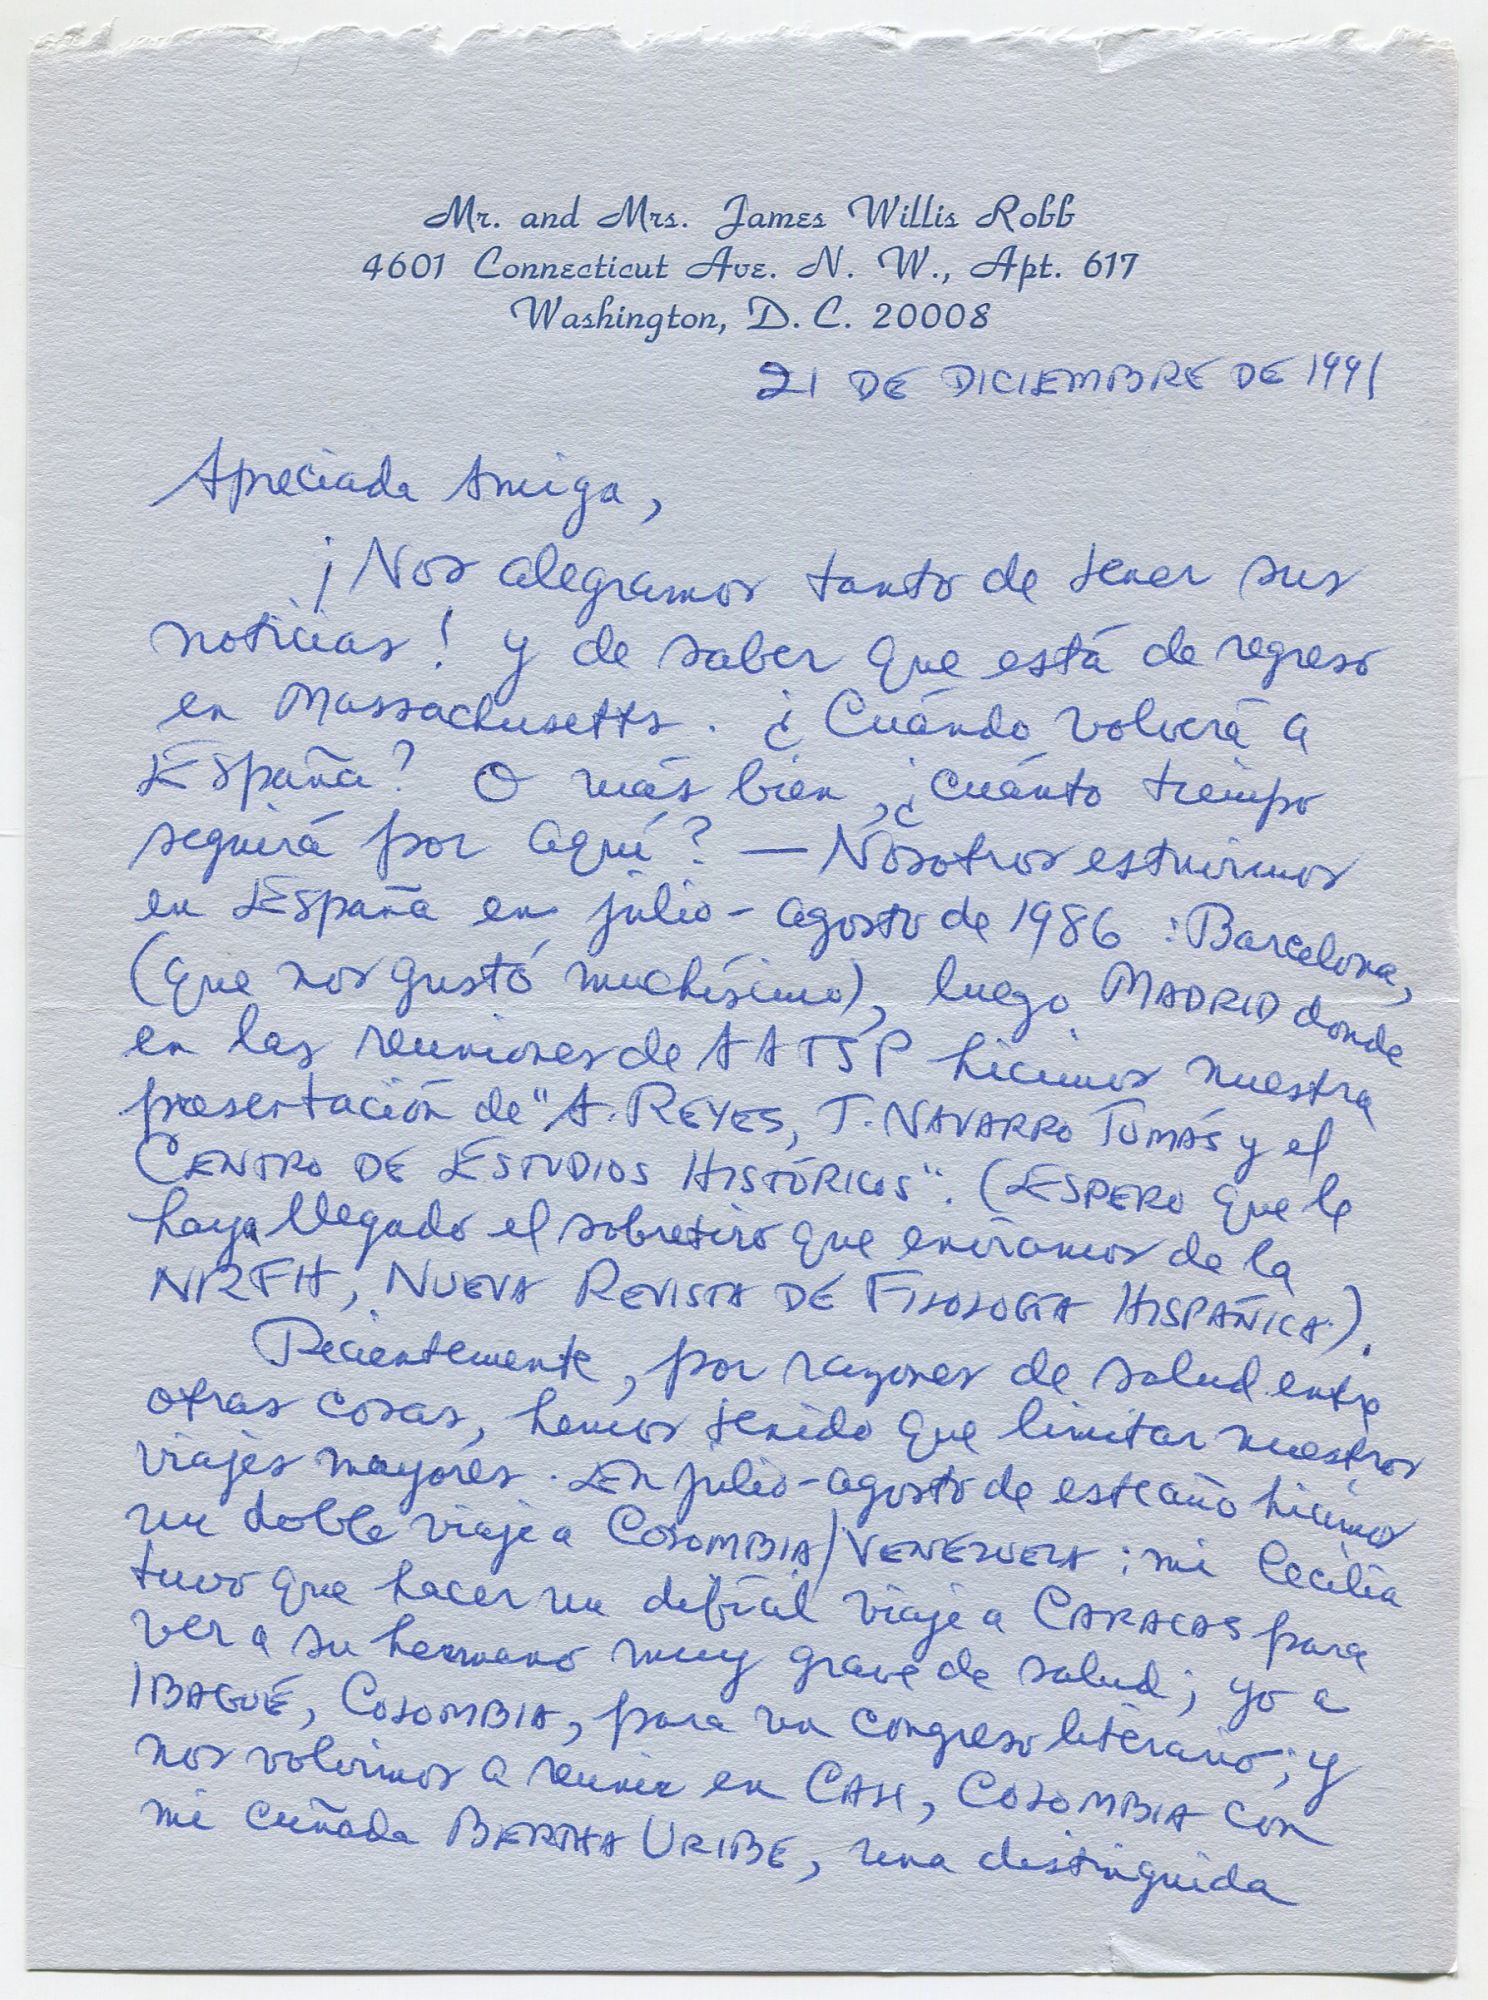 Mr. and Mrs. James Willis Robb
4601 Connecticut Ave. N. W., Apt. 617
Washington, D. C. 20008
21 DE DICIEMBRE DE 1991
Apreciada Amiga,
¡Nos alegramos tanto de tener sus
noticias! y de saber que está de regreso
en Massachusetts. ¿Cuándo volverá a
España? O más bien, ¿cuánto tiempo
seguirá por aquí? — Nosotros estuvimos
en España en julio-agosto de 1986: Barcelona,
(que nos gustó muchísimo), luego MADRID donde
en las reuniones de AATSP hicimos nuestra
presentación de "A. REYES, T. NAVARRO TOMÁS y el
CENTRO DE ESTUDIOS HISTÓRICOS". (ESPERO que le
haya llegado el sobretiro que enviamos de la
NRFH, NUEVA REVISTA DE FILOLOGÍA HISPÁNICA).
Recientemente, por razones de salud entre
otras cosas, hemos tenido que limitar nuestros
viajes mayores. En julio-agosto de este año hicimos
un doble viaje a COLOMBIA/VENEZUELA: mi Cecilia
tuvo que hacer un difícil viaje a CARACAS para
ver a su hermano muy grave de salud; yo a
IBAGUÉ, COLOMBIA, para un congreso literario; y
nos volvimos a reunir en CALI, COLOMBIA con
mi cuñada BERTHA URIBE, una distinguida